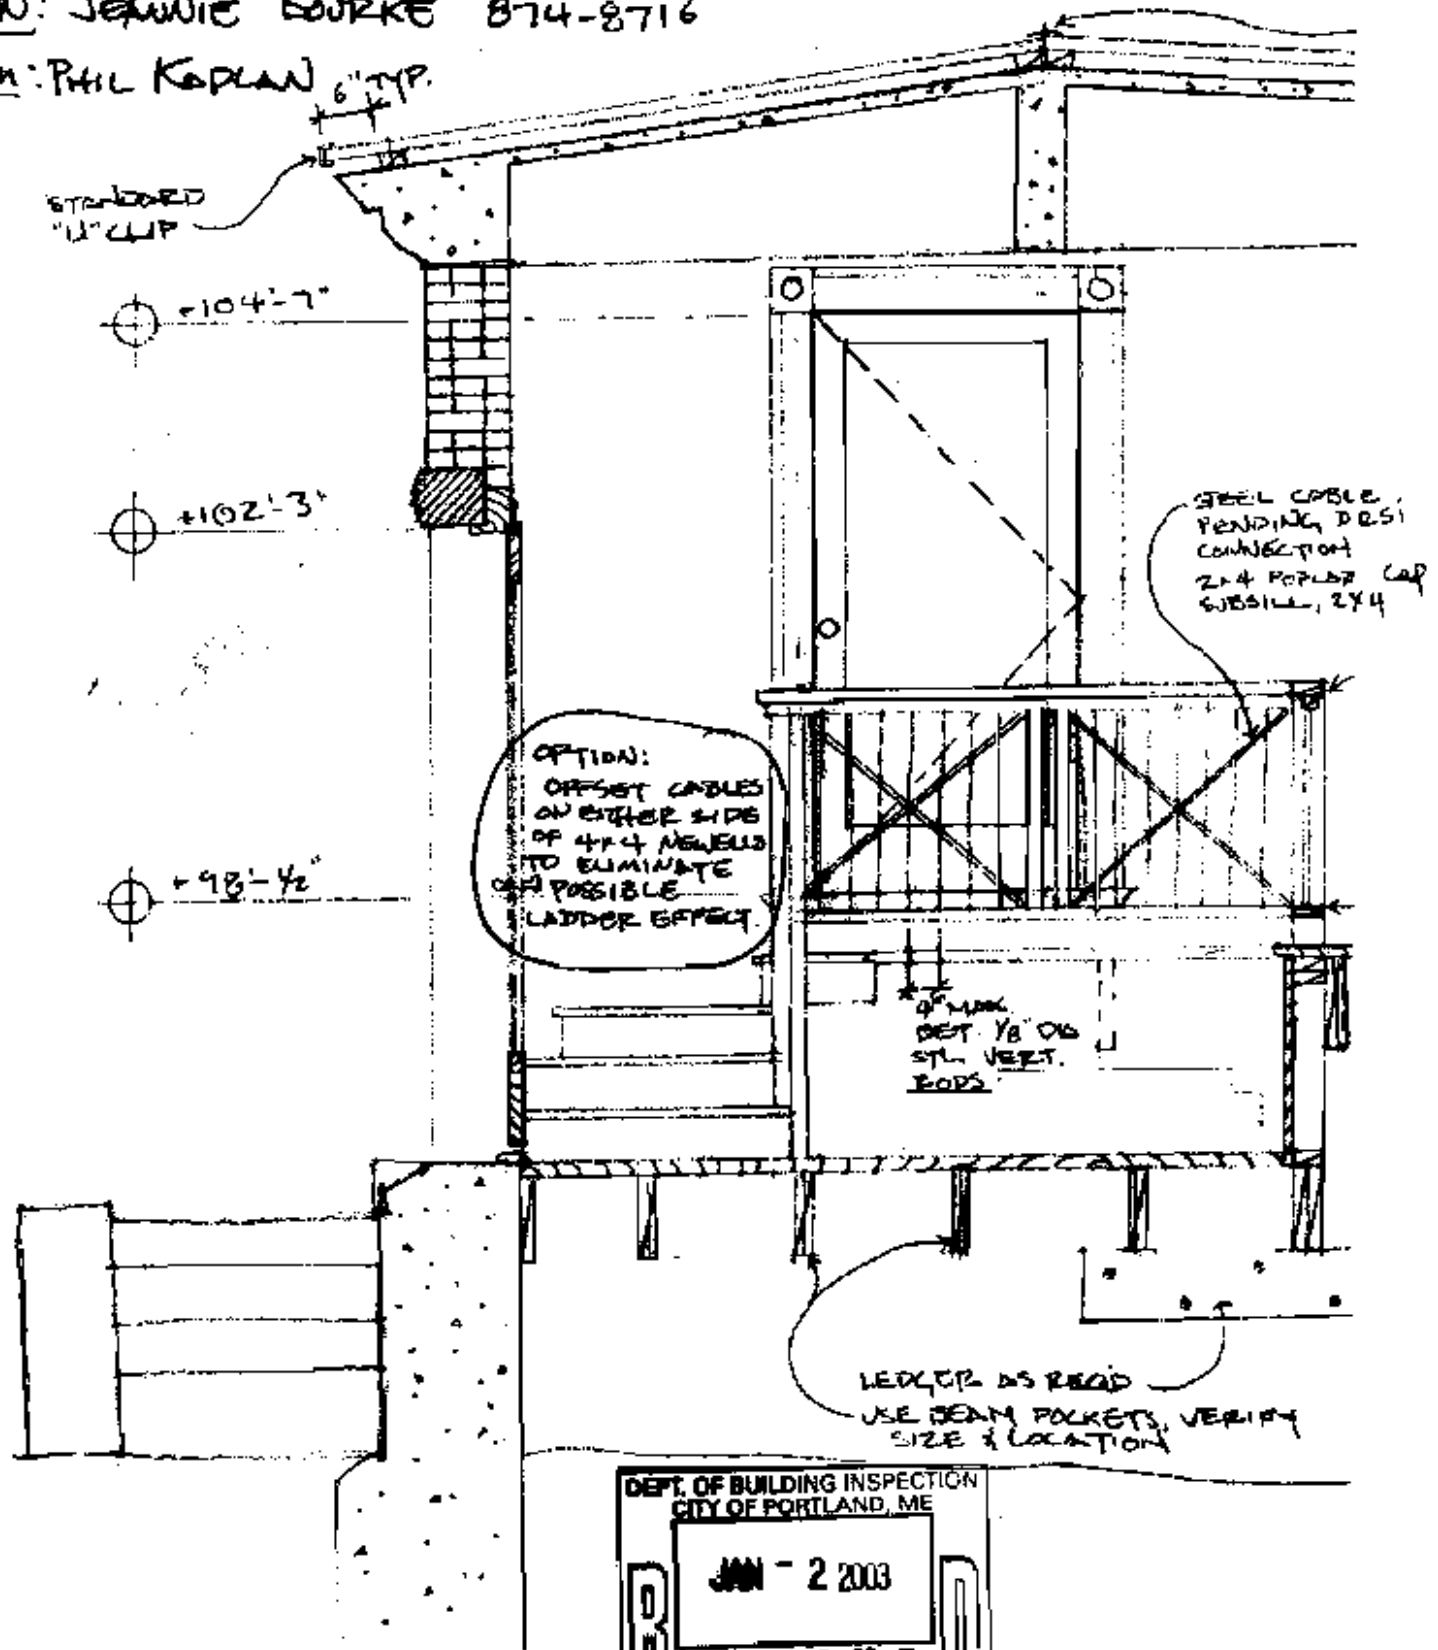 N: JEANNIE BOURKE 874-8716
M: PHIL KAPLAN
6" TYP.
STANDARD
"U" CLIP
+104'-7"
+102'-3"
+98'-½"
STEEL CABLE,
PENDING DESI
CONNECTION
2x4 POPLAR CAP
SUBSILL, 2X4
OPTION:
OFFSET CABLES
ON EITHER SIDE
OF 4x4 NEWELLS
TO ELIMINATE
POSSIBLE
LADDER EFFECT.
4" MAX
BET. 1/8" DIA
STL. VERT.
RODS
LEDGER AS REQ'D
USE BEAM POCKETS, VERIFY
SIZE & LOCATION
DEPT. OF BUILDING INSPECTION
CITY OF PORTLAND, ME
JAN - 2 2003